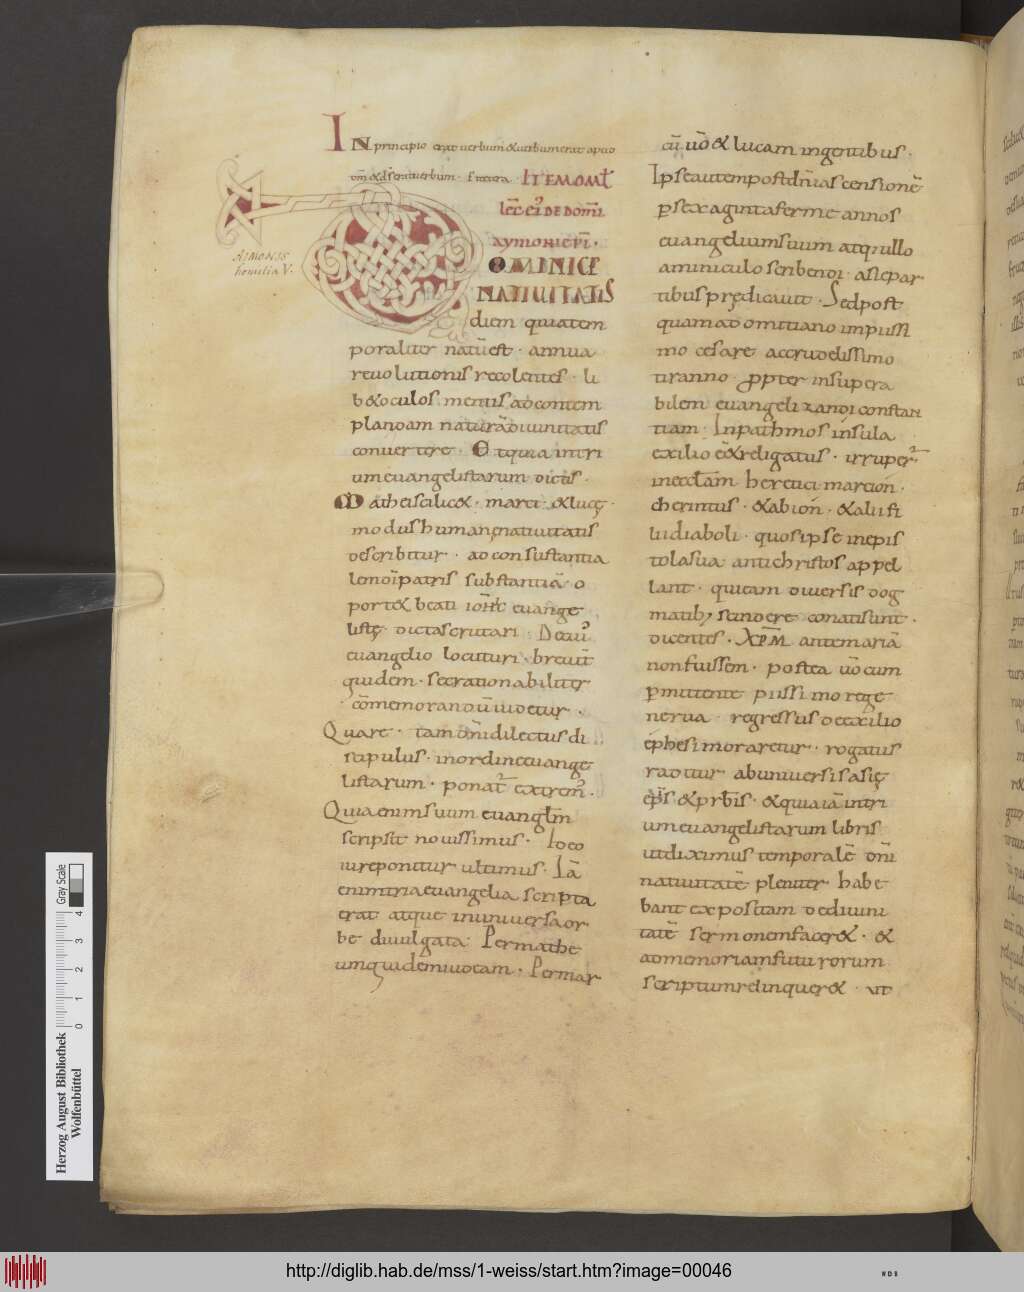 IN principio erat uerbum̄ & uerbum erat apud
dm̄ & dS̄ erat uerbum · & cetera · ITEM OML̄
LEC̄ EI᾽ DE DOMI᷎
AYMONIC P̄I ·
HAIMONIS
homilia V.
DOMINICE
NATIUITATIS
diem quia tem
poraliter natū est · annua
reuolutionis recolentes · li
b& oculos mentis ad contem
plandam naturā diuinitatis
conuertere · Et quia intri
um euangelistarum dictis ·
Mathei scilic& · marci · & lucę ·
modus humanę natiuitatis
describitur · ad consubstantia
lem dī patris substantiā · o
port& beati ioħis euange
listę · dicta scrutari · De cui᾽
euangelio locuturi · breuit̄
quidem · sed rationabiliter
cōmemorandū uidetur ·
Quare · tam dn̄i dilectus di
scipulus · in ordine euange
listarum · ponat᾽ extrem᾽ ·
Quia enim suum euangl̄m
scripsit nouissimus · Ideo
iure ponitur ultimus · Iā
enim tria euangelia scripta
erat atque in uniuersa or
be diuulgata · Per mathe
um quidem iudeam · Per mar
cū uō & lucam in gentibus ·
Ipse autem post dn̄i ascensionē
per sexaginta ferme annos
euangelium suum atq; nullo
aminiculo scribendi asię par
tibus prędicauit · Sed post
quam a domitiano impiissi
mo cesare accrudelissimo
tiranno · ppter insupera
bilem euangelizandi constan
tiam · In pathmos insula
exilio ē & religatus · irruper᾽
in eccl̄am heretici marcion ·
cherintus · & abion · & alii fi
lii diaboli · quos ipse in epis
tola sua antichristos appel
lant · qui eam diuersis dog
matib; scindere conati sunt ·
dicentes · XP̄M ante mariā
non fuissem · postea uō cum
permittente piissimo rege
nerua · regressus de exilio
ephesi moraretur · rogatus
traditur ab uniuersis asię
ep̄is & prb̄is · & quia iā intri
um euangelistarum libris
ut diximus temporalē dn̄i
natiuitatē pleniter habe
bant expositam de diuini
tatē sermonem facer& · &
ad memoriam futurorum
scriptum relinquer& · ut
Herzog August Bibliothek
Wolfenbüttel
0 1 2 3 4
Gray Scale
http://diglib.hab.de/mss/1-weiss/start.htm?image=00046